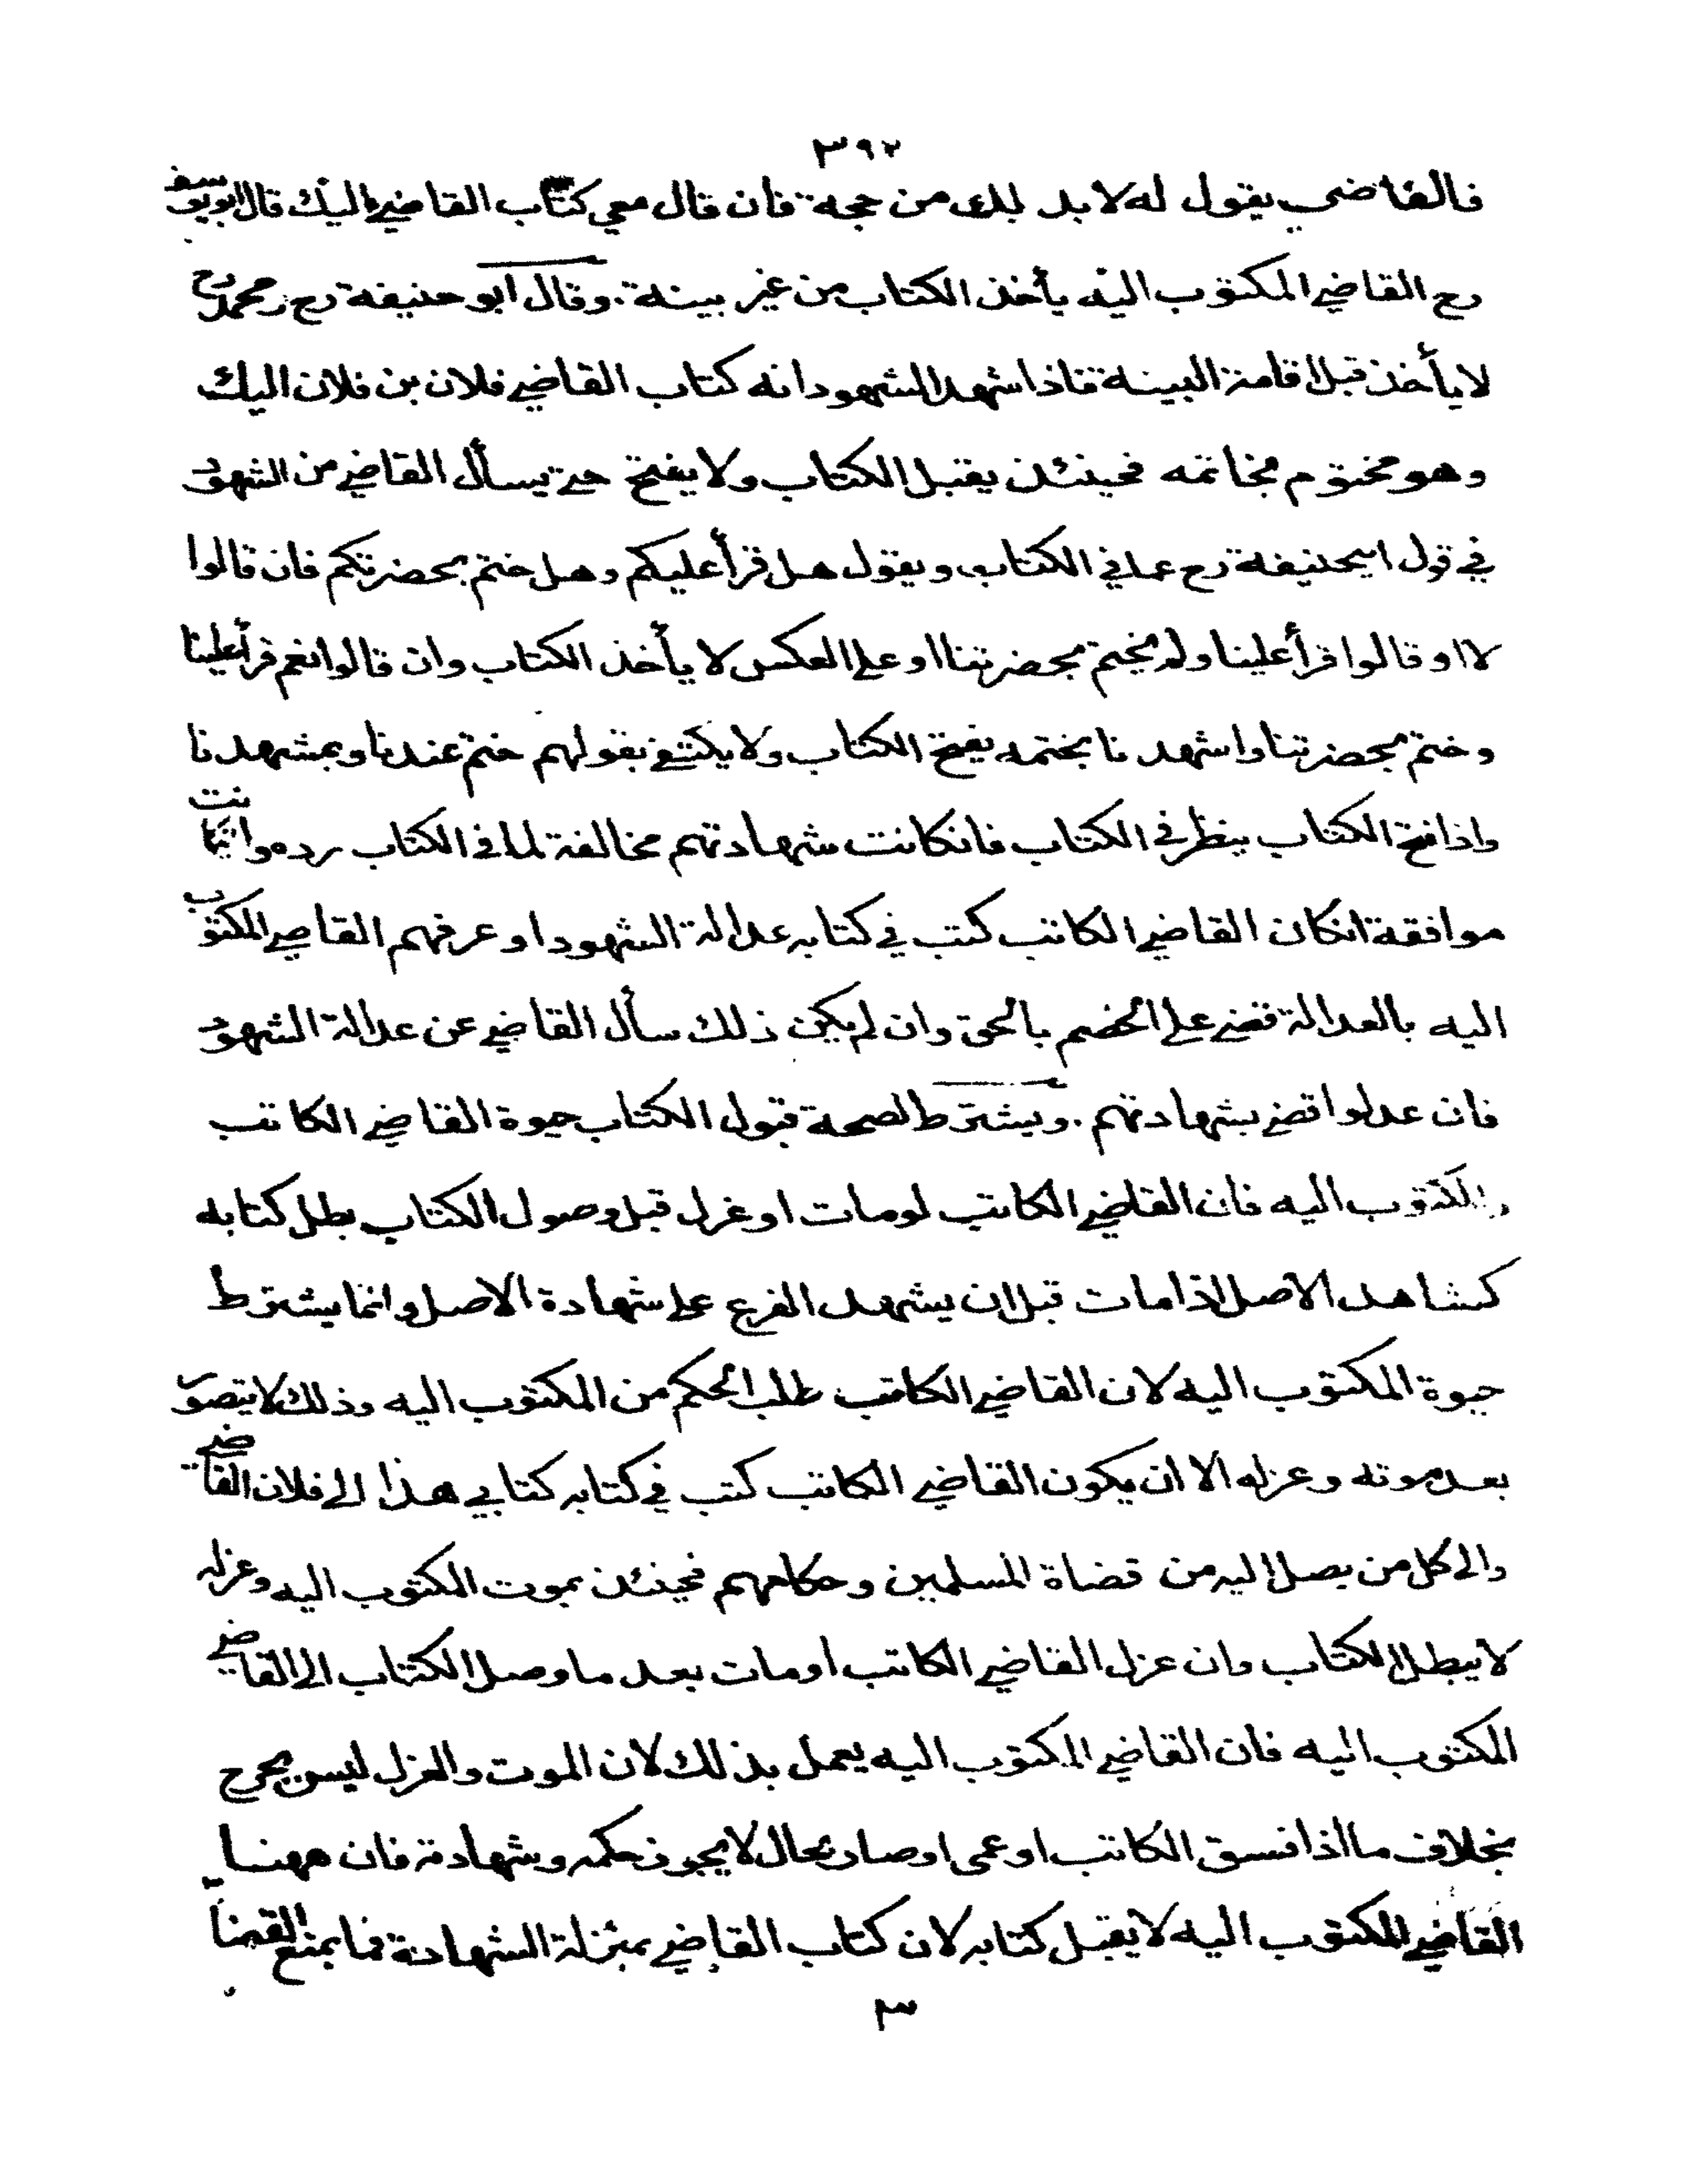 ٣٩٢
فالقاضي يقول له لا بد لك من حجة فان قال معي كتاب القاضي اليك قال ابو يوسف
رح القاضي المكتوب اليه يأخذ الكتاب من غير بينة . وقال ابو حنيفة رح ومحمد رح
لا يأخذ قبل اقامة البينة فاذا شهد الشهود انه كتاب القاضي فلان بن فلان اليك
وهو مختوم بخاتمه فحينئذ يقبل الكتاب ولا يفتح حتى يسأل القاضي من الشهود
في قول ابيحنيفة رح عما في الكتاب ويقول هل قرأ عليكم وهل ختم بحضرتكم فان قالوا
لا او قالوا قرأ علينا ولم يختم بحضرتنا او على العكس لا يأخذ الكتاب وان قالوا نعم قرأ علينا
وختم بحضرتنا واشهدنا بختمه يفتح الكتاب ولا يكتفى بقولهم ختم عندنا وبمشهدنا
واذا فتح الكتاب ينظر في الكتاب فانكانت شهادتهم مخالفة لما في الكتاب رده وانكانت
موافقة انكان القاضي الكاتب كتب في كتابه عدالة الشهود او عرفهم القاضي المكتوب
اليه بالعدالة قضى على الخصم بالحق وان لم يكن ذلك سأل القاضي عن عدالة الشهود
فان عدلوا قضى بشهادتهم . ويشترط لصحة قبول الكتاب حيوة القاضي الكاتب
والمكتوب اليه فان القاضي الكاتب لو مات او عزل قبل وصول الكتاب بطل كتابه
كشاهد الاصل اذا مات قبل ان يشهد الفرع على شهادة الاصل وانما يشترط
حيوة المكتوب اليه لان القاضي الكاتب طلب الحكم من المكتوب اليه وذلك لا يتصور
بعد موته وعزله الا ان يكون القاضي الكاتب كتب في كتابه كتابي هذا الى فلان القاضي
والى كل من يصل اليه من قضاة المسلمين وحكامهم فحينئذ بموت المكتوب اليه وعزله
لا يبطل الكتاب وان عزل القاضي الكاتب او مات بعد ما وصل الكتاب الى القاضي
المكتوب اليه فان القاضي المكتوب اليه يعمل بذلك لان الموت والعزل ليس بجرح
بخلاف ما اذا فسق الكاتب او عمى او صار بحال لا يجوز حكمه وشهادته فان ههنا
القاضي المكتوب اليه لا يقبل كتابه لان كتاب القاضي بمنزلة الشهادة فما يمنع القضاء
٣